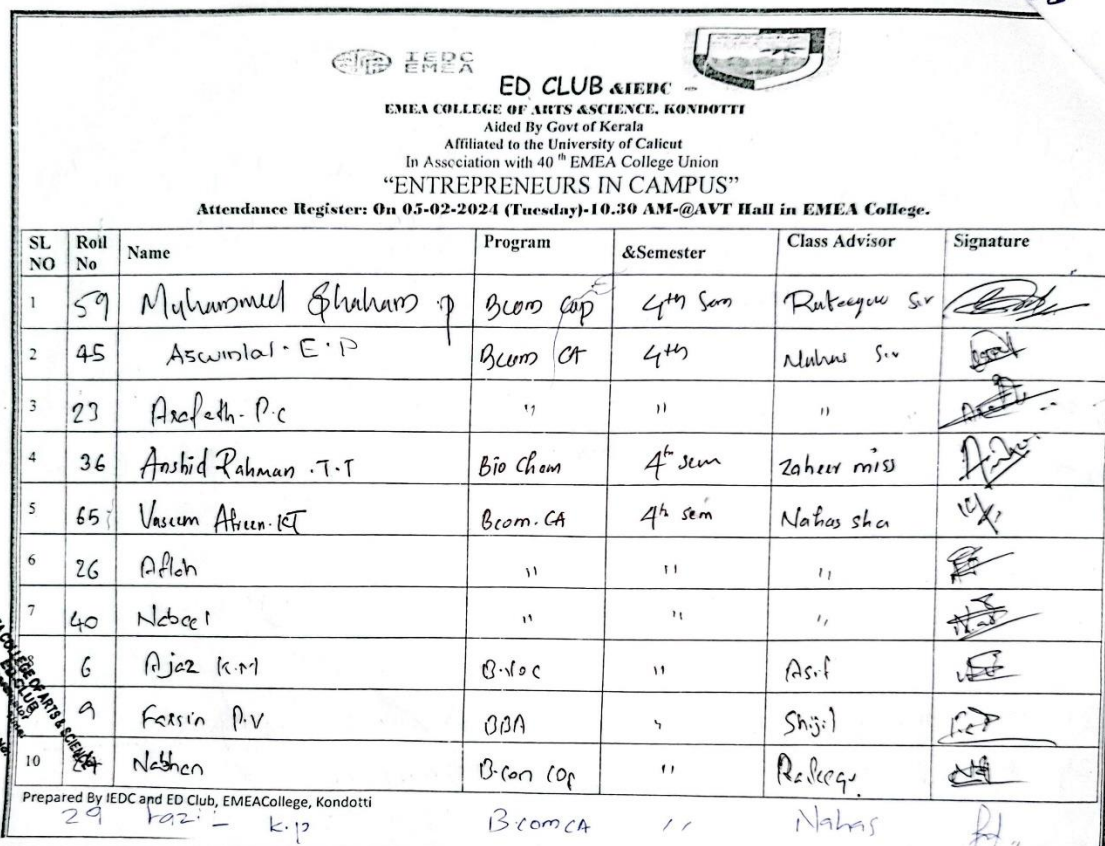 IEDC
EMEA
ED CLUB &IEDC -
EMEA COLLEGE OF ARTS &SCIENCE, KONDOTTI
Aided By Govt of Kerala
Affiliated to the University of Calicut
In Association with 40 th EMEA College Union
“ENTREPRENEURS IN CAMPUS”
Attendance Register: On 05-02-2024 (Tuesday)-10.30 AM-@AVT Hall in EMEA College.
SL NO Roll No Name Program &Semester Class Advisor Signature
1 59 Bcom 4th Sem Sir
2 45 Aswinlal. E. P Bcom CA 4th Sir
3 23 Arafath. P.c " " "
4 36 Anshid Rahman .T.T Bio Chem 4th sem Zaheer miss
5 65 Bcom. CA 4th sem Nahas sha
6 26 " " "
7 40 Nabeel " " "
6 Ajaz K.M B.Voc " Asif
9 Farsin P.V BBA " Shijil
10 "
Prepared By IEDC and ED Club, EMEACollege, Kondotti
29 K.P B.com CA " Nahas
COLLEGE OF ARTS & SCIENCE
ED CLUB